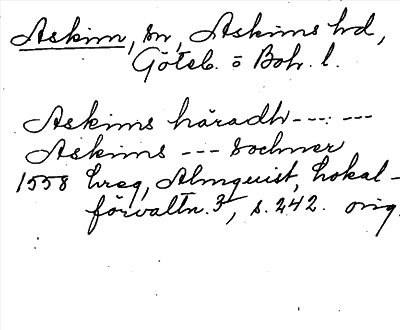 Askim, sn, Askims hd,
Göteb. o Boh. l.
Askims häradh --- ---
Askims --- Sochner
1558 Almquist, Lokal-
förvaltn. 3, s. 242. orig.